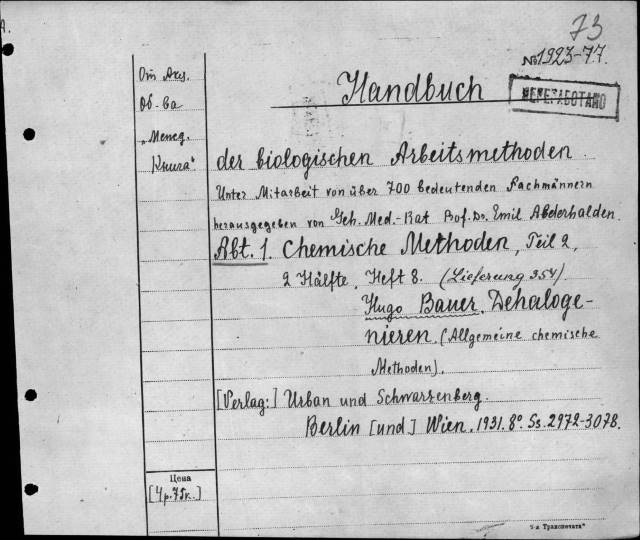 A.
73
№1923-77.
От Акц.
Об-ва
„Межд.
Книга"
Handbuch
ПЕРЕРАБОТАНО
der biologischen Arbeitsmethoden.
Unter Mitarbeit von über 700 bedeutenden Fachmännern
herausgegeben von Geh. Med.-Rat Prof. Dr. Emil Abderhalden.
Abt. 1. Chemische Methoden, Teil 2,
2 Hälfte, Heft 8. (Lieferung 354).
Hugo Bauer. Dehaloge-
nieren. (Allgemeine chemische
Methoden).
[Verlag:] Urban und Schwarzenberg.
Berlin [und] Wien. 1931. 8°. Ss. 2972-3078.
Цена
[4р.75к.]
Транспечати"